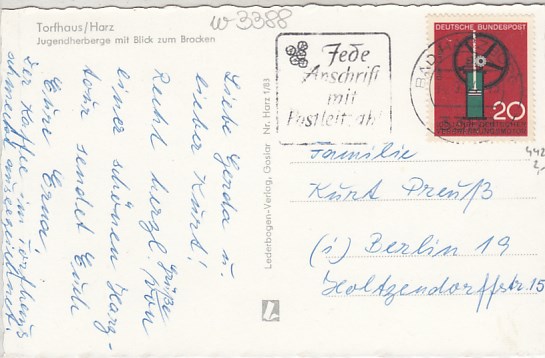 Torfhaus/Harz
Jugendherberge mit Blick zum Brocken
w 3388
Liebe Gerda u.
lieber Kurt!
Recht herzl. Grüße von
einer schönen Harz-
tour sendet Euch
Eure Erna
Der Kaffee im Torfhaus
schmeckt ausgezeichnet.
Lederbogen-Verlag, Goslar Nr. Harz 1/83
Jede
Anschrift
mit
Postleitzahl
BAD
DEUTSCHE BUNDESPOST
20
Familie
Kurt Preuß
(1) Berlin 19
Holtzendorffstr. 15